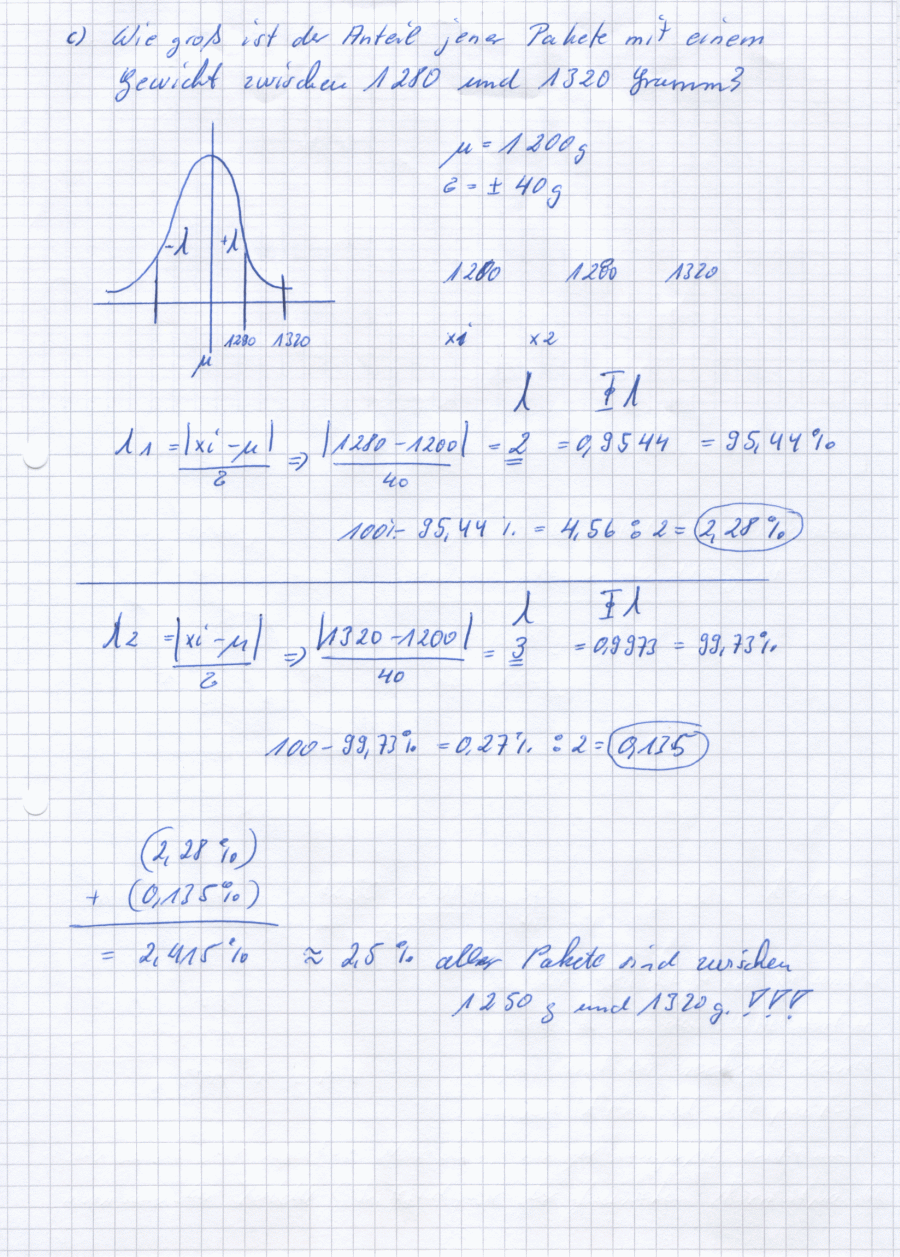 c) Wie groß ist der Anteil jener Pakete mit einem
Gewicht zwischen 1280 und 1320 Gramm?
μ = 1200g
σ = ± 40g
-λ +λ
1200 1280 1320
μ 1280 1320
xi x2
λ Φλ
λ1 = |xi - μ| / σ => |1280 - 1200| / 40 = 2 = 0,9544 = 95,44%
100% - 95,44% = 4,56 : 2 = 2,28%
λ Φλ
λ2 = |xi - μ| / σ => |1320 - 1200| / 40 = 3 = 0,9973 = 99,73%
100 - 99,73% = 0,27% : 2 = 0,135
(2,28%)
+ (0,135%)
= 2,415% ≈ 2,5% aller Pakete sind zwischen
1250 g und 1320g. !!!